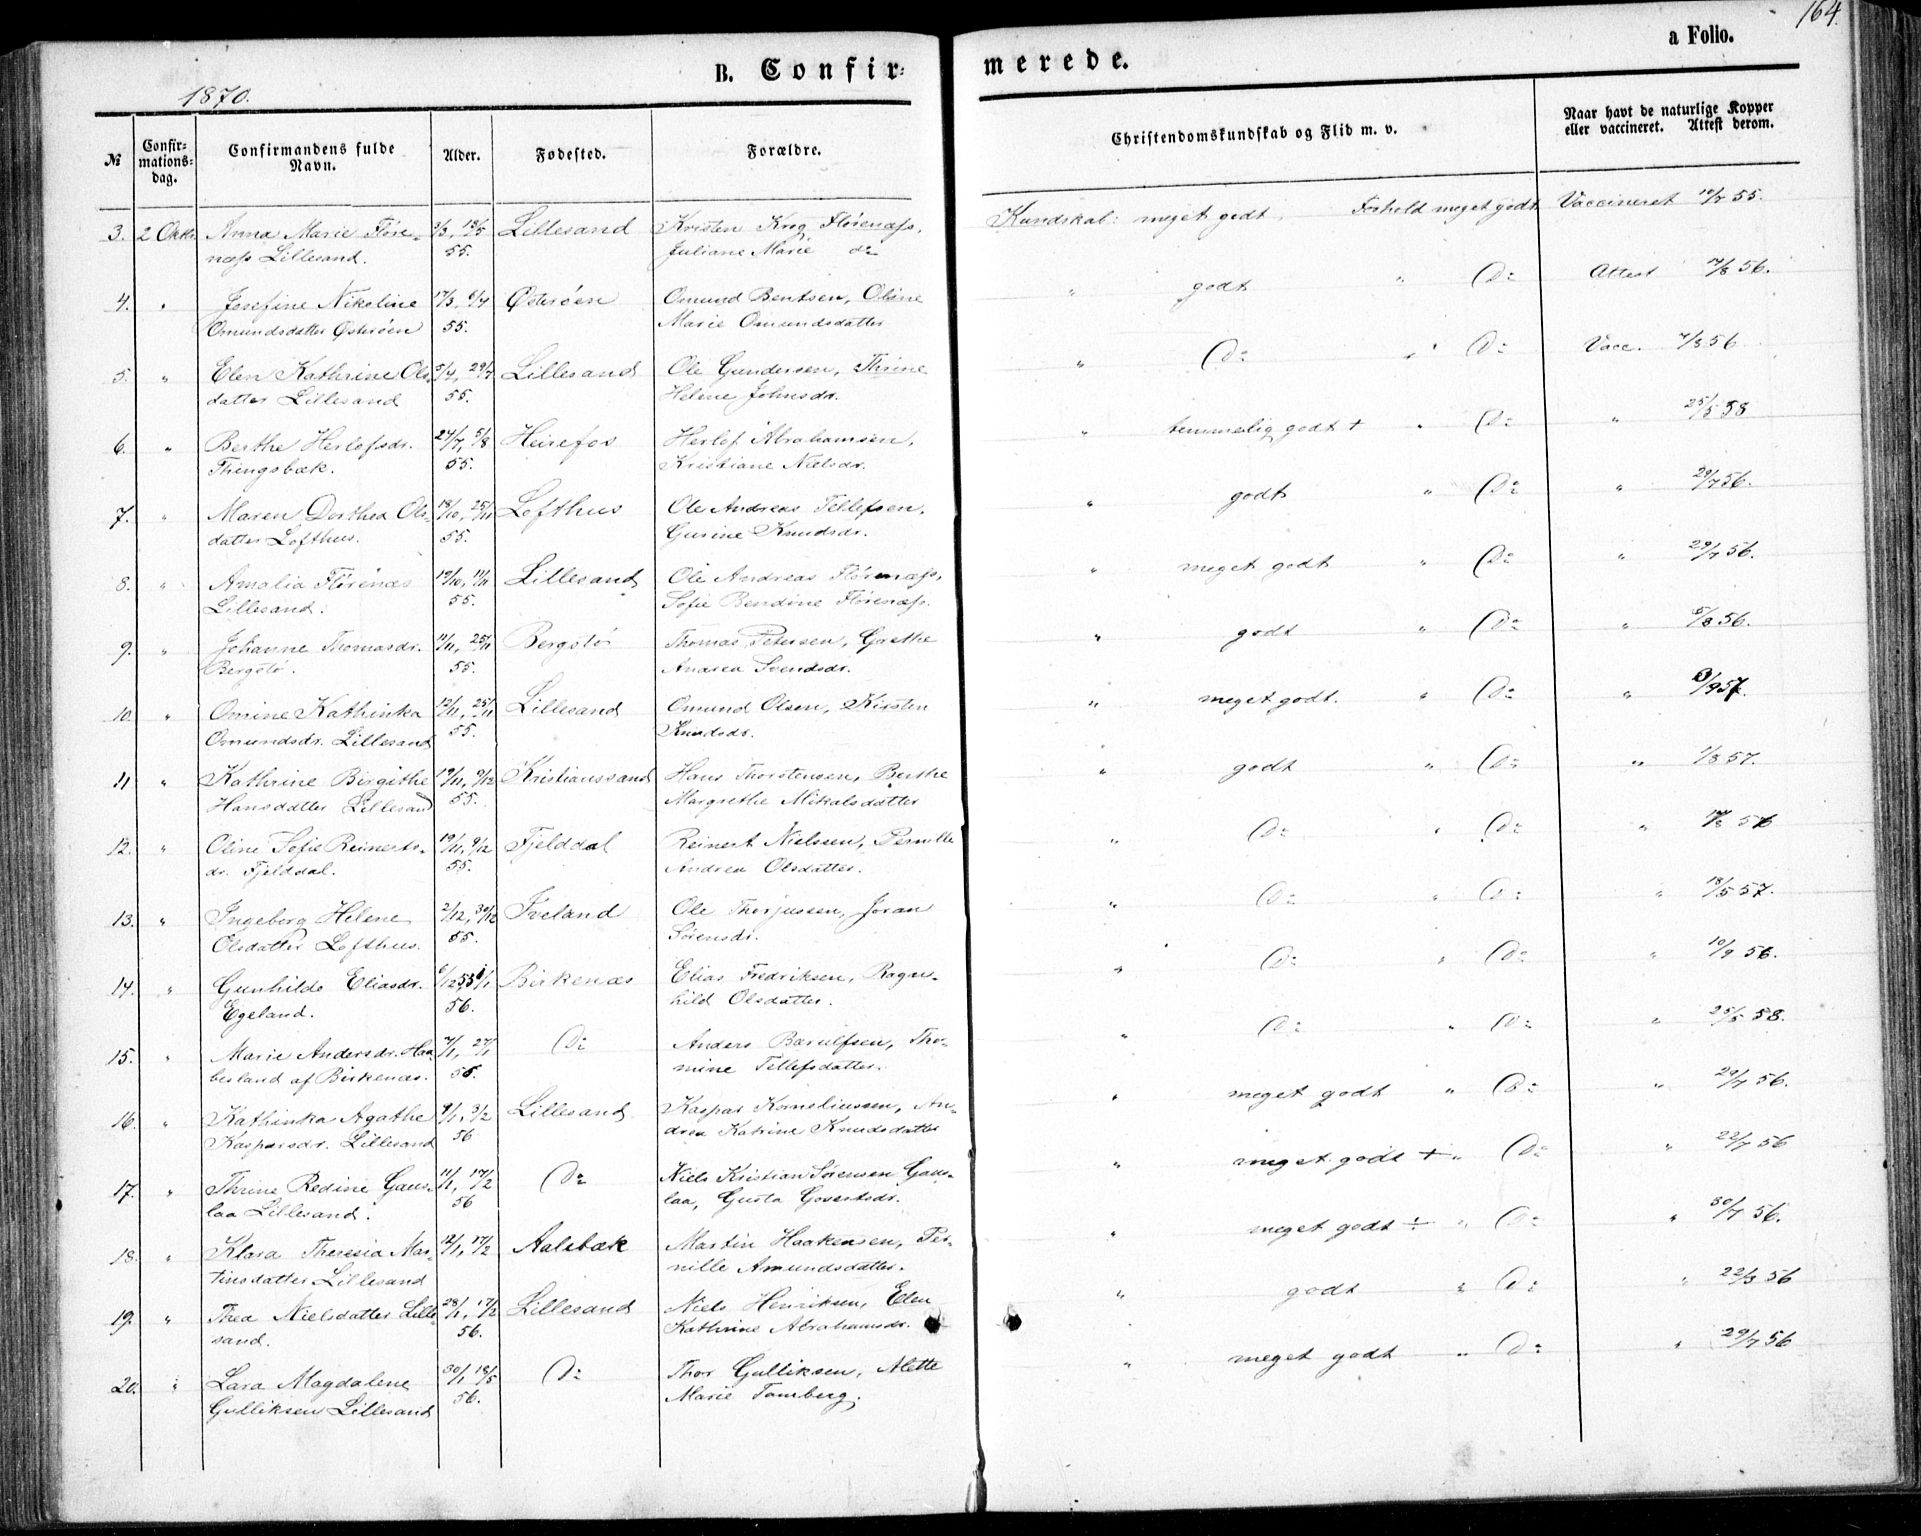 164.
a Folio.
B. Confir-
merede.
1870.
№
Confir-
mations-
dag.
Confirmandens fulde
Navn.
Alder.
Fødested.
Forældre.
Christendomskundskab og Flid m. v.
Naar havt de naturlige Kopper
eller vaccineret. Attest derom.
3. 2 Oktr. Anna Marie Fløre- Lillesand Kristen Krog Flørenæss, Kundskab: meget godt. Forhold meget godt Vaccineret 19/7 55.
næss Lillesand. 55. Juliane Marie do
4. " Josefine Nikoline 17/3, 6/4 Østerøen Omund Bentsen, Oline " godt " Do Attest 7/8 56.
Omundsdatter Østerøen 55. Marie Omundsdatter
5. " Elen Kathrine Ols- 5/4, 29/7 Lillesand Ole Gundersen, Thrine " Do " Do Vacc. 7/8 56
datter Lillesand 55. Helene Johnsdr.
6. " Berthe Herlofsdr. 27/7, 5/8 Heirefos Herlof Abrahamsen, " temmelig godt + " Do " 25/5 58
Thingsbæk. 55. Kristiane Nielsdr.
7. " Maren Dorthea Ols- 18/10, 25/11 Lofthus Ole Andreas Tellefsen, " godt " Do " 29/7 56.
datter Lofthus. 55. Gurine Knudsdr.
8. " Amalia Flørenæs 19/10, 11/11 Lillesand Ole Andreas Flørenæss, " meget godt " Do " 29/7 56.
Lillesand. 55. Sofie Bendine Flørenæss.
9. " Johanne Thomasdr. 11/11, 25/11 Bergstø Thomas Petersen, Grethe " godt " Do " 5/8 56.
Bergstø. 55. Andrea Svendsdr.
10. " Omine Kathinka 12/11, 25/11 Lillesand Omund Olsen, Kirsten " meget godt. " Do " 3/9 57.
Omundsdr. Lillesand 55. Knudsdr.
11 " Kathrine Birgithe 19/11, 9/12 Kristianssand Hans Thorstensen, Berthe " godt " Do " 1/8 57.
Hansdatter Lillesand 55. Margrethe Mikalsdatter
12. " Oline Sofie Reinerts- 19/11, 9/12 Fjelddal Reinert Nielssen, Pernille " Do " Do " 56
dr. Fjelddal. 55. Andrea Olsdatter.
13. " Ingeborg Helene 2/12, 30/12 Iveland Ole Thorjussen, Joran " Do " Do " 18/5 57.
Olsdatter Lofthus. 55. Sørensdr.
14. " Gunhilde Eliasdr. 6/12 55 Birkenæs Elias Fredriksen, Ragn- " Do " Do " 10/9 56.
Egeland. 56. hild Olsdatter.
15. " Marie Andersdr. Haa- 7/1, 27/1 Do Anders Barulfsen, Tho- " Do " Do " 25/5 58.
besland af Birkenæs. 56. mine Tellefsdatter.
16. " Kathinka Agathe 9/1, 3/2 Lillesand Kaspar Korneliussen, An- " meget godt " Do " 29/7 56.
Kaspersdr. Lillesand 56 drea Katrine Knudsdatter
17. " Thrine Redine Gaus- 11/1, 17/2 Do Niels Kristian Sørensen Gaus- " meget godt + " Do " 22/7 56
laa Lillesand. 56 laa, Gusta Govertsdr.
18. " Klara Theresia Mar- 12/1, 17/2 Aalebæk Martin Haakensen, Per- " meget godt ÷ " Do " 30/7 56.
tinsdatter Lillesand nille Amundsdatter.
19. " Thea Nielsdatter Lille- 28/1, 17/2 Lillesand Niels Henriksen, Elen " godt " Do " 22/3 56
sand. 56. Kathrine Abrahamsdr.
20. " Lara Magdalene 30/1 18/5 Do Thor Gulliksen, Alette " meget godt " Do " 29/7 56
Gulliksen Lillesand 56. Marie Tamberg.